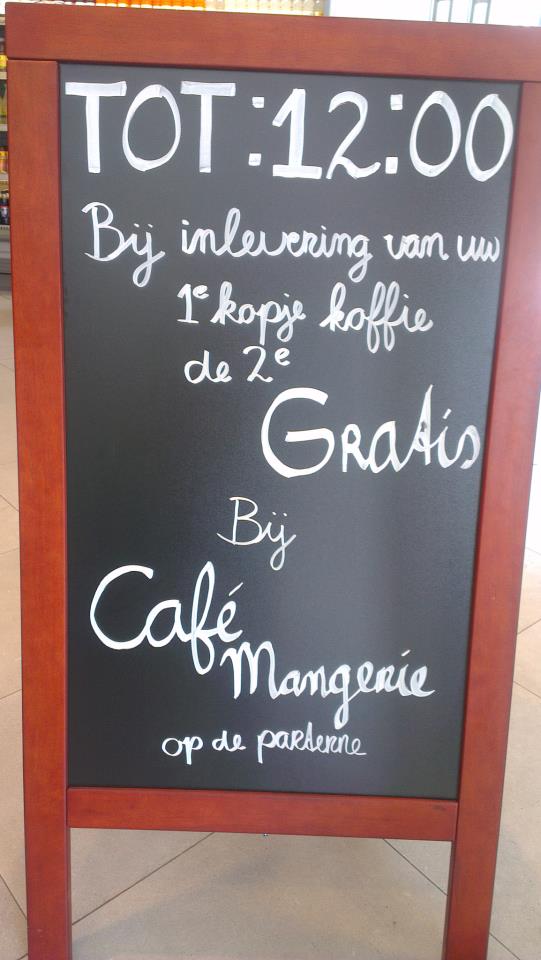 TOT:12:00
Bij inlevering van uw
1e kopje koffie
de 2e
Gratis
Bij
Café
Mangerie
op de parterre